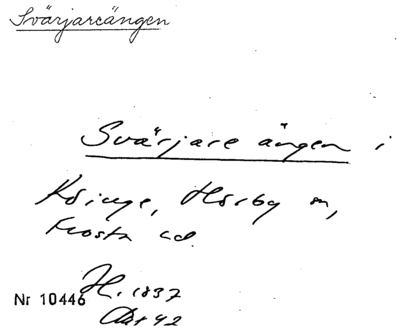 Svärjareängen
Svärjare ängen i
Köinge, Hörby sn,
Frosta hd.
H. 1837
Nr 10446
Akt 42